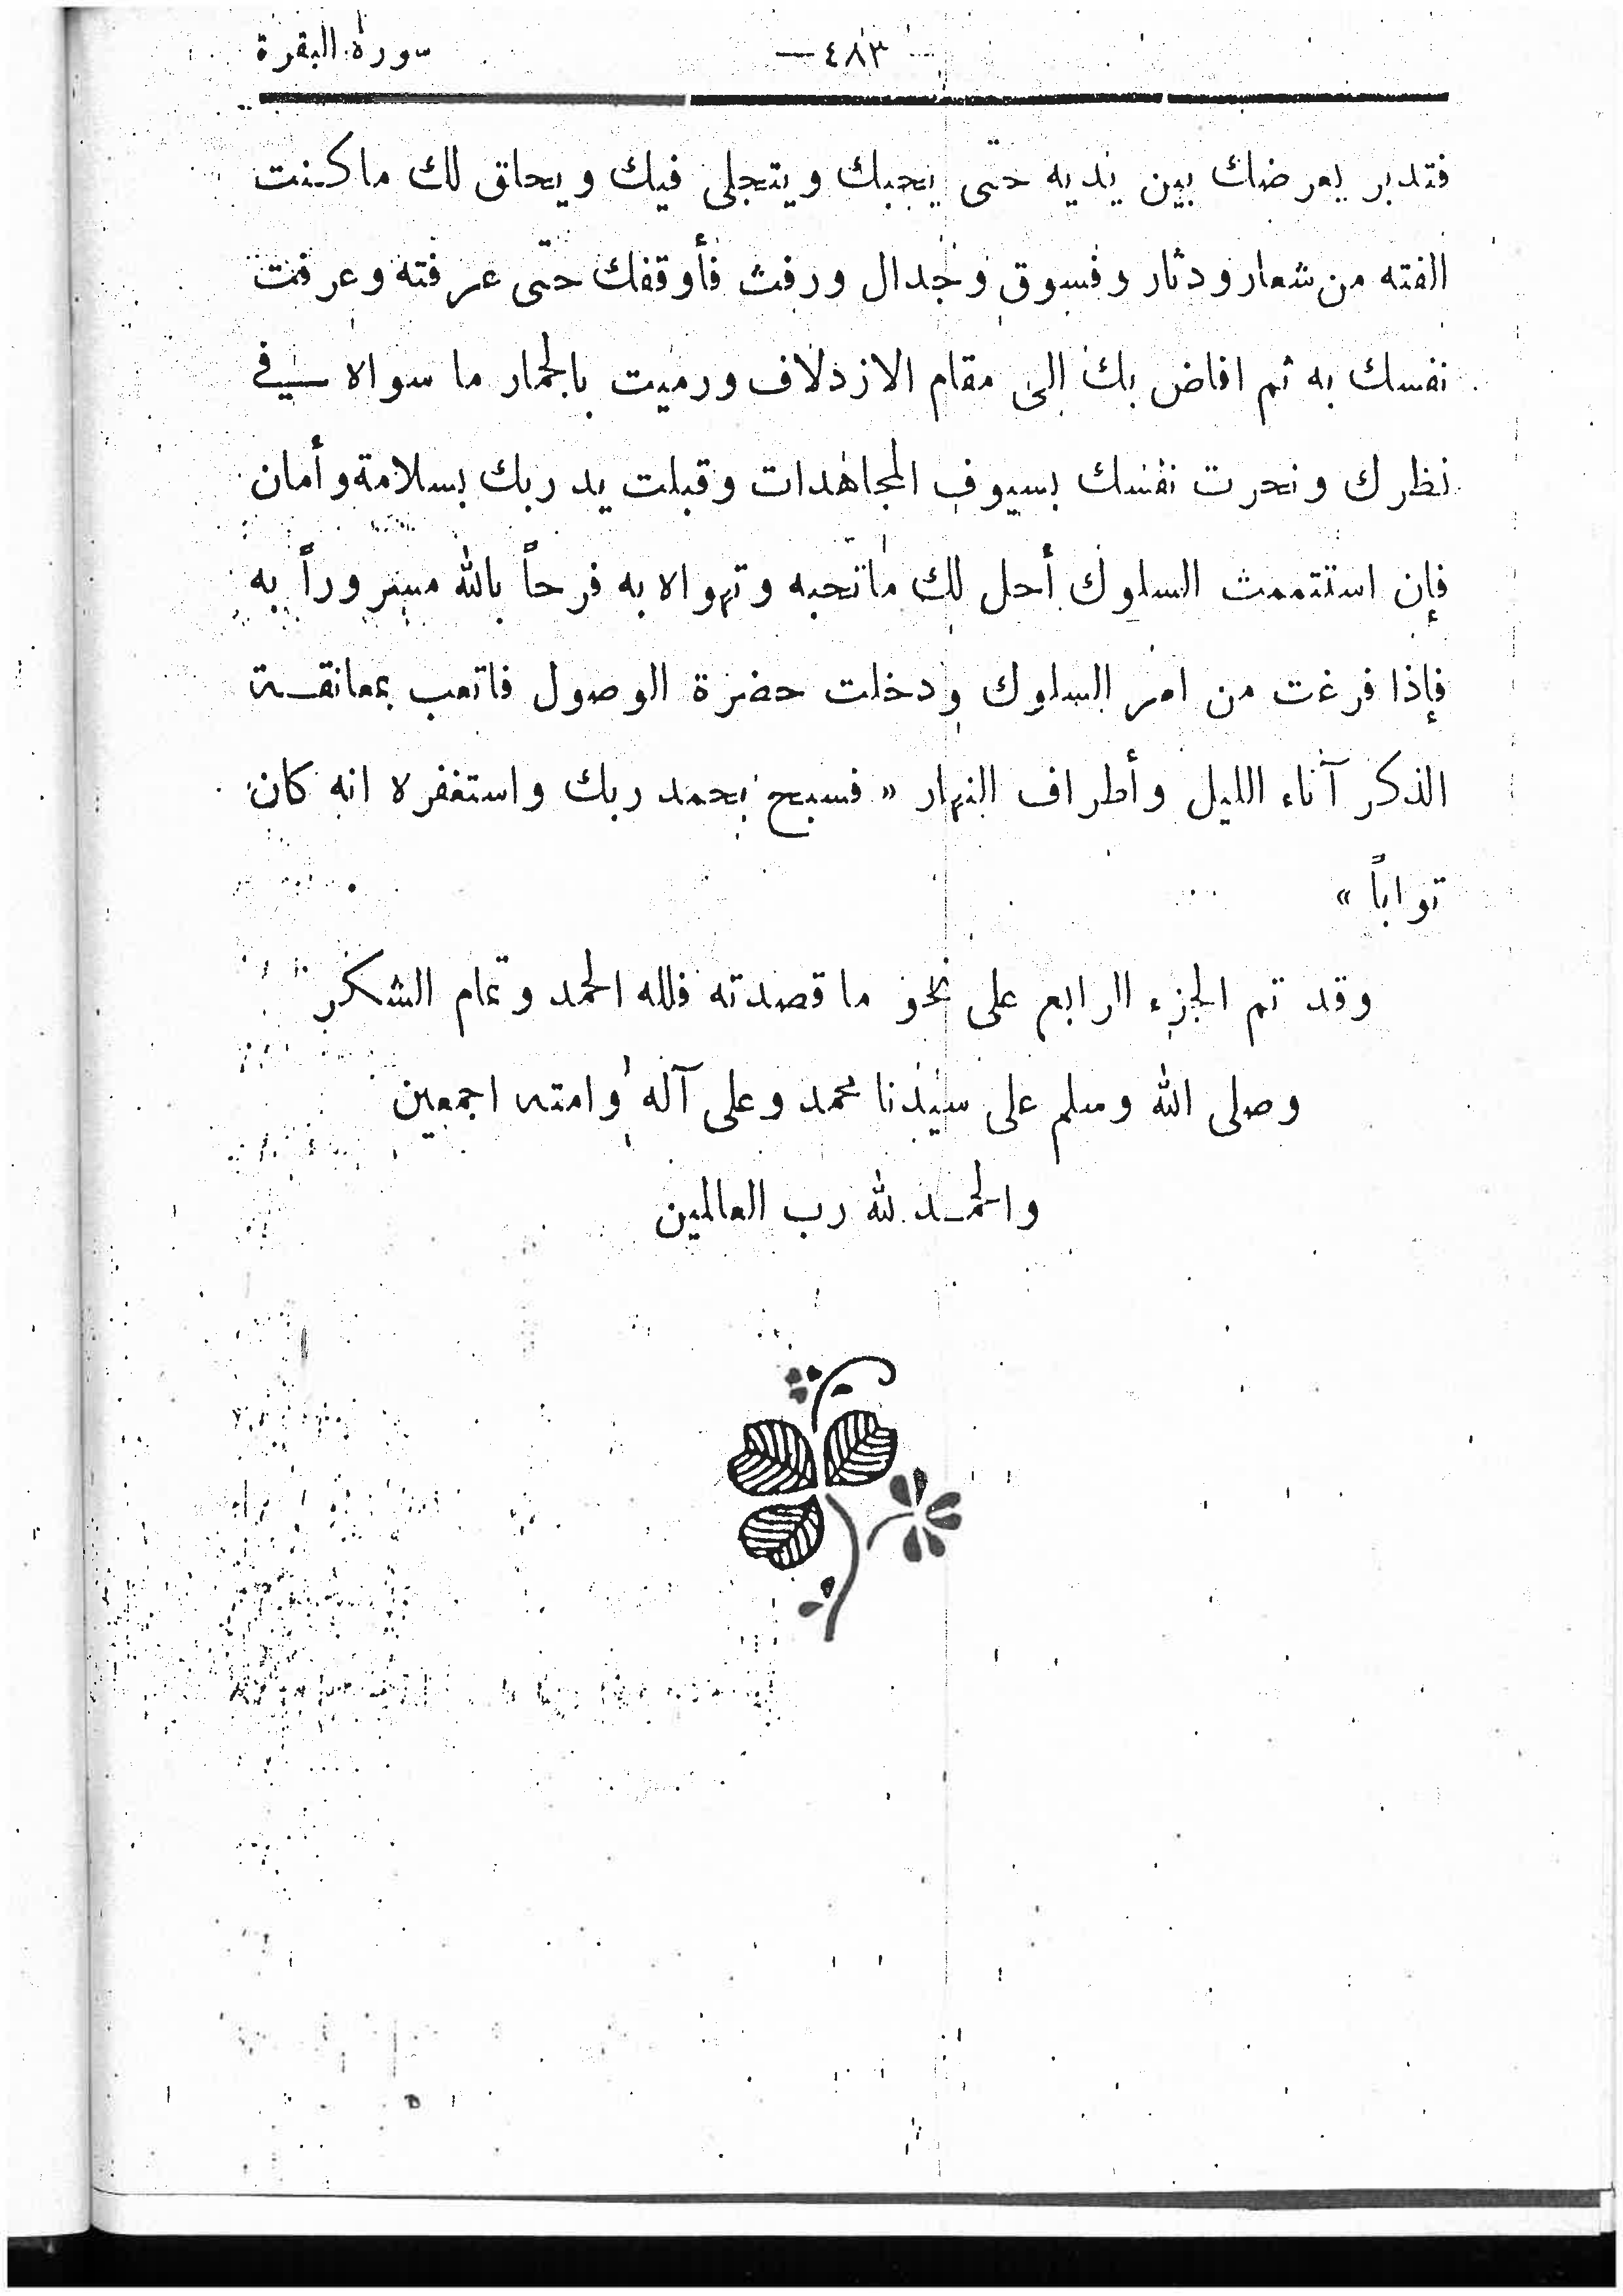 سورة البقرة — ٤٨٣ —
فتدبر يعرضك بين يديه حتى يحبك ويتجلى فيك ويحلق لك ما كنت
الفته من شعار ودثار وفسوق وجدال ورفث فأوقفك حتى عرفته وعرفت
نفسك به ثم افاض بك إلى مقام الازدلاف ورميت بالجمار ما سواه في
نظرك ونحرت نفسك بسيوف المجاهدات وقبلت يد ربك بسلامة وأمان
فإن استتممت السلوك أحل لك ما تحبه وتهواه به فرحاً بالله مسروراً به
فإذا فرغت من امر السلوك ودخلت حضرة الوصول فاتعب بمعانقة
الذكر آناء الليل وأطراف النهار « فسبح بحمد ربك واستغفره انه كان
تواباً »
وقد تم الجزء الرابع على نحو ما قصدته فلله الحمد وتمام الشكر
وصلى الله وسلم على سيدنا محمد وعلى آله وامته اجمعين
والحمد لله رب العالمين